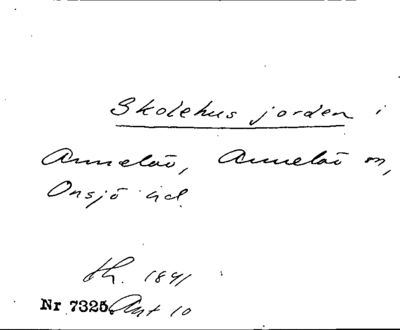 Skolehus jorden i
Annelöv, Annelöv sn,
Onsjö hd.
th. 1841
Nr 7325 Ant 10